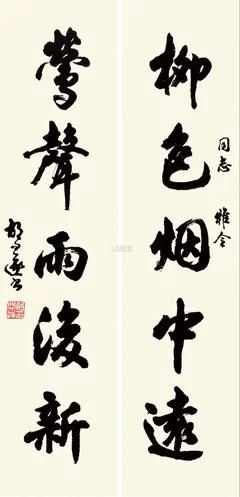 柳色烟中远
同志 雅令
莺声雨后新